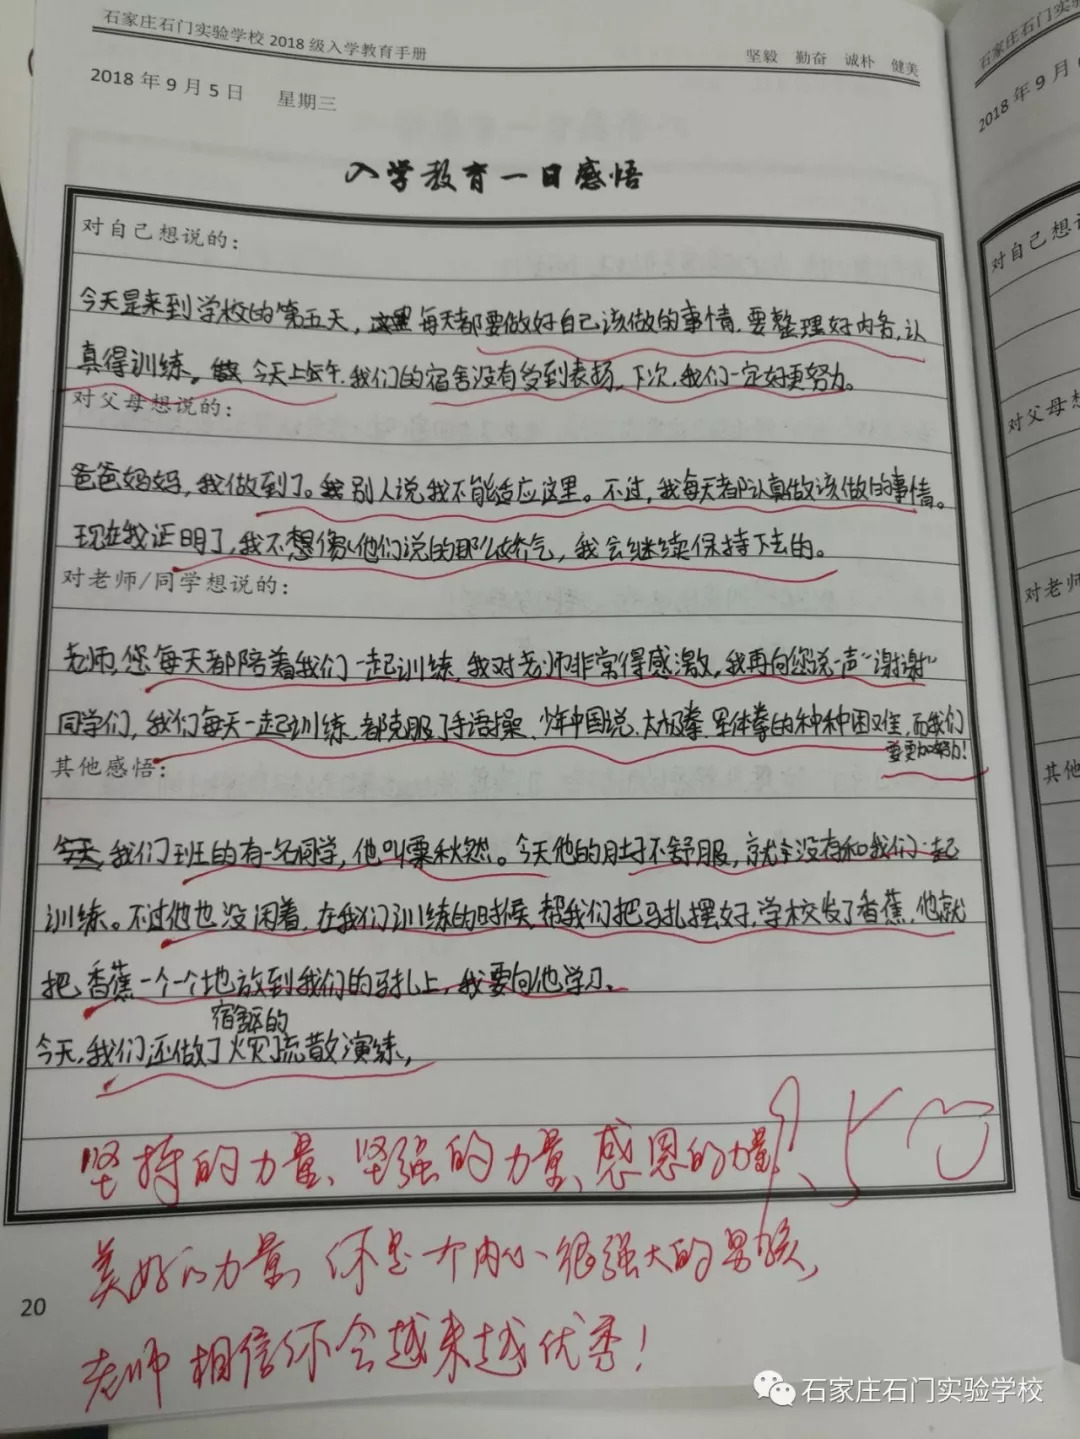 石家庄石门实验学校 2018 级入学教育手册
坚毅 勤奋 诚朴 健美
2018 年 9 月 5 日 星期三
入学教育一日感悟
对自己想说的:
今天是来到学校的第五天，每天都要做好自己该做的事情，要整理好内务，认
真得训练。今天上午，我们的宿舍没有受到表扬，下次，我们一定好更努力。
对父母想说的:
爸爸妈妈，我做到了。别人说我不能适应这里。不过，我每天都认真做该做的事情。
现在我证明了，我不想像他们说的那么娇气，我会继续保持下去的。
对老师/同学想说的:
老师，您每天都陪着我们一起训练，我对老师非常得感激，我再向您说一声“谢谢”
同学们，我们每天一起训练，都克服了手语操、少年中国说、太极拳、军体拳的种种困难，而我们
要更加努力！
其他感悟:
今天，我们班的有一名同学，他叫粟秋然。今天他的肚子不舒服，就没有和我们一起
训练。不过他也没闲着，在我们训练的时候，帮我们把马扎摆好，学校发了香蕉，他就
把香蕉一个一个地放到我们的马扎上，我要向他学习。
宿舍区的
今天，我们还做了火灾疏散演练，
坚持的力量、坚强的力量、感恩的力量、
美好的力量，你是一个内心很强大的男孩，
老师相信你会越来越优秀！
20
石家庄石门实验学校
石家庄石门实验学校
2018 年 9 月
对自己想
对父母想
对老师
其他